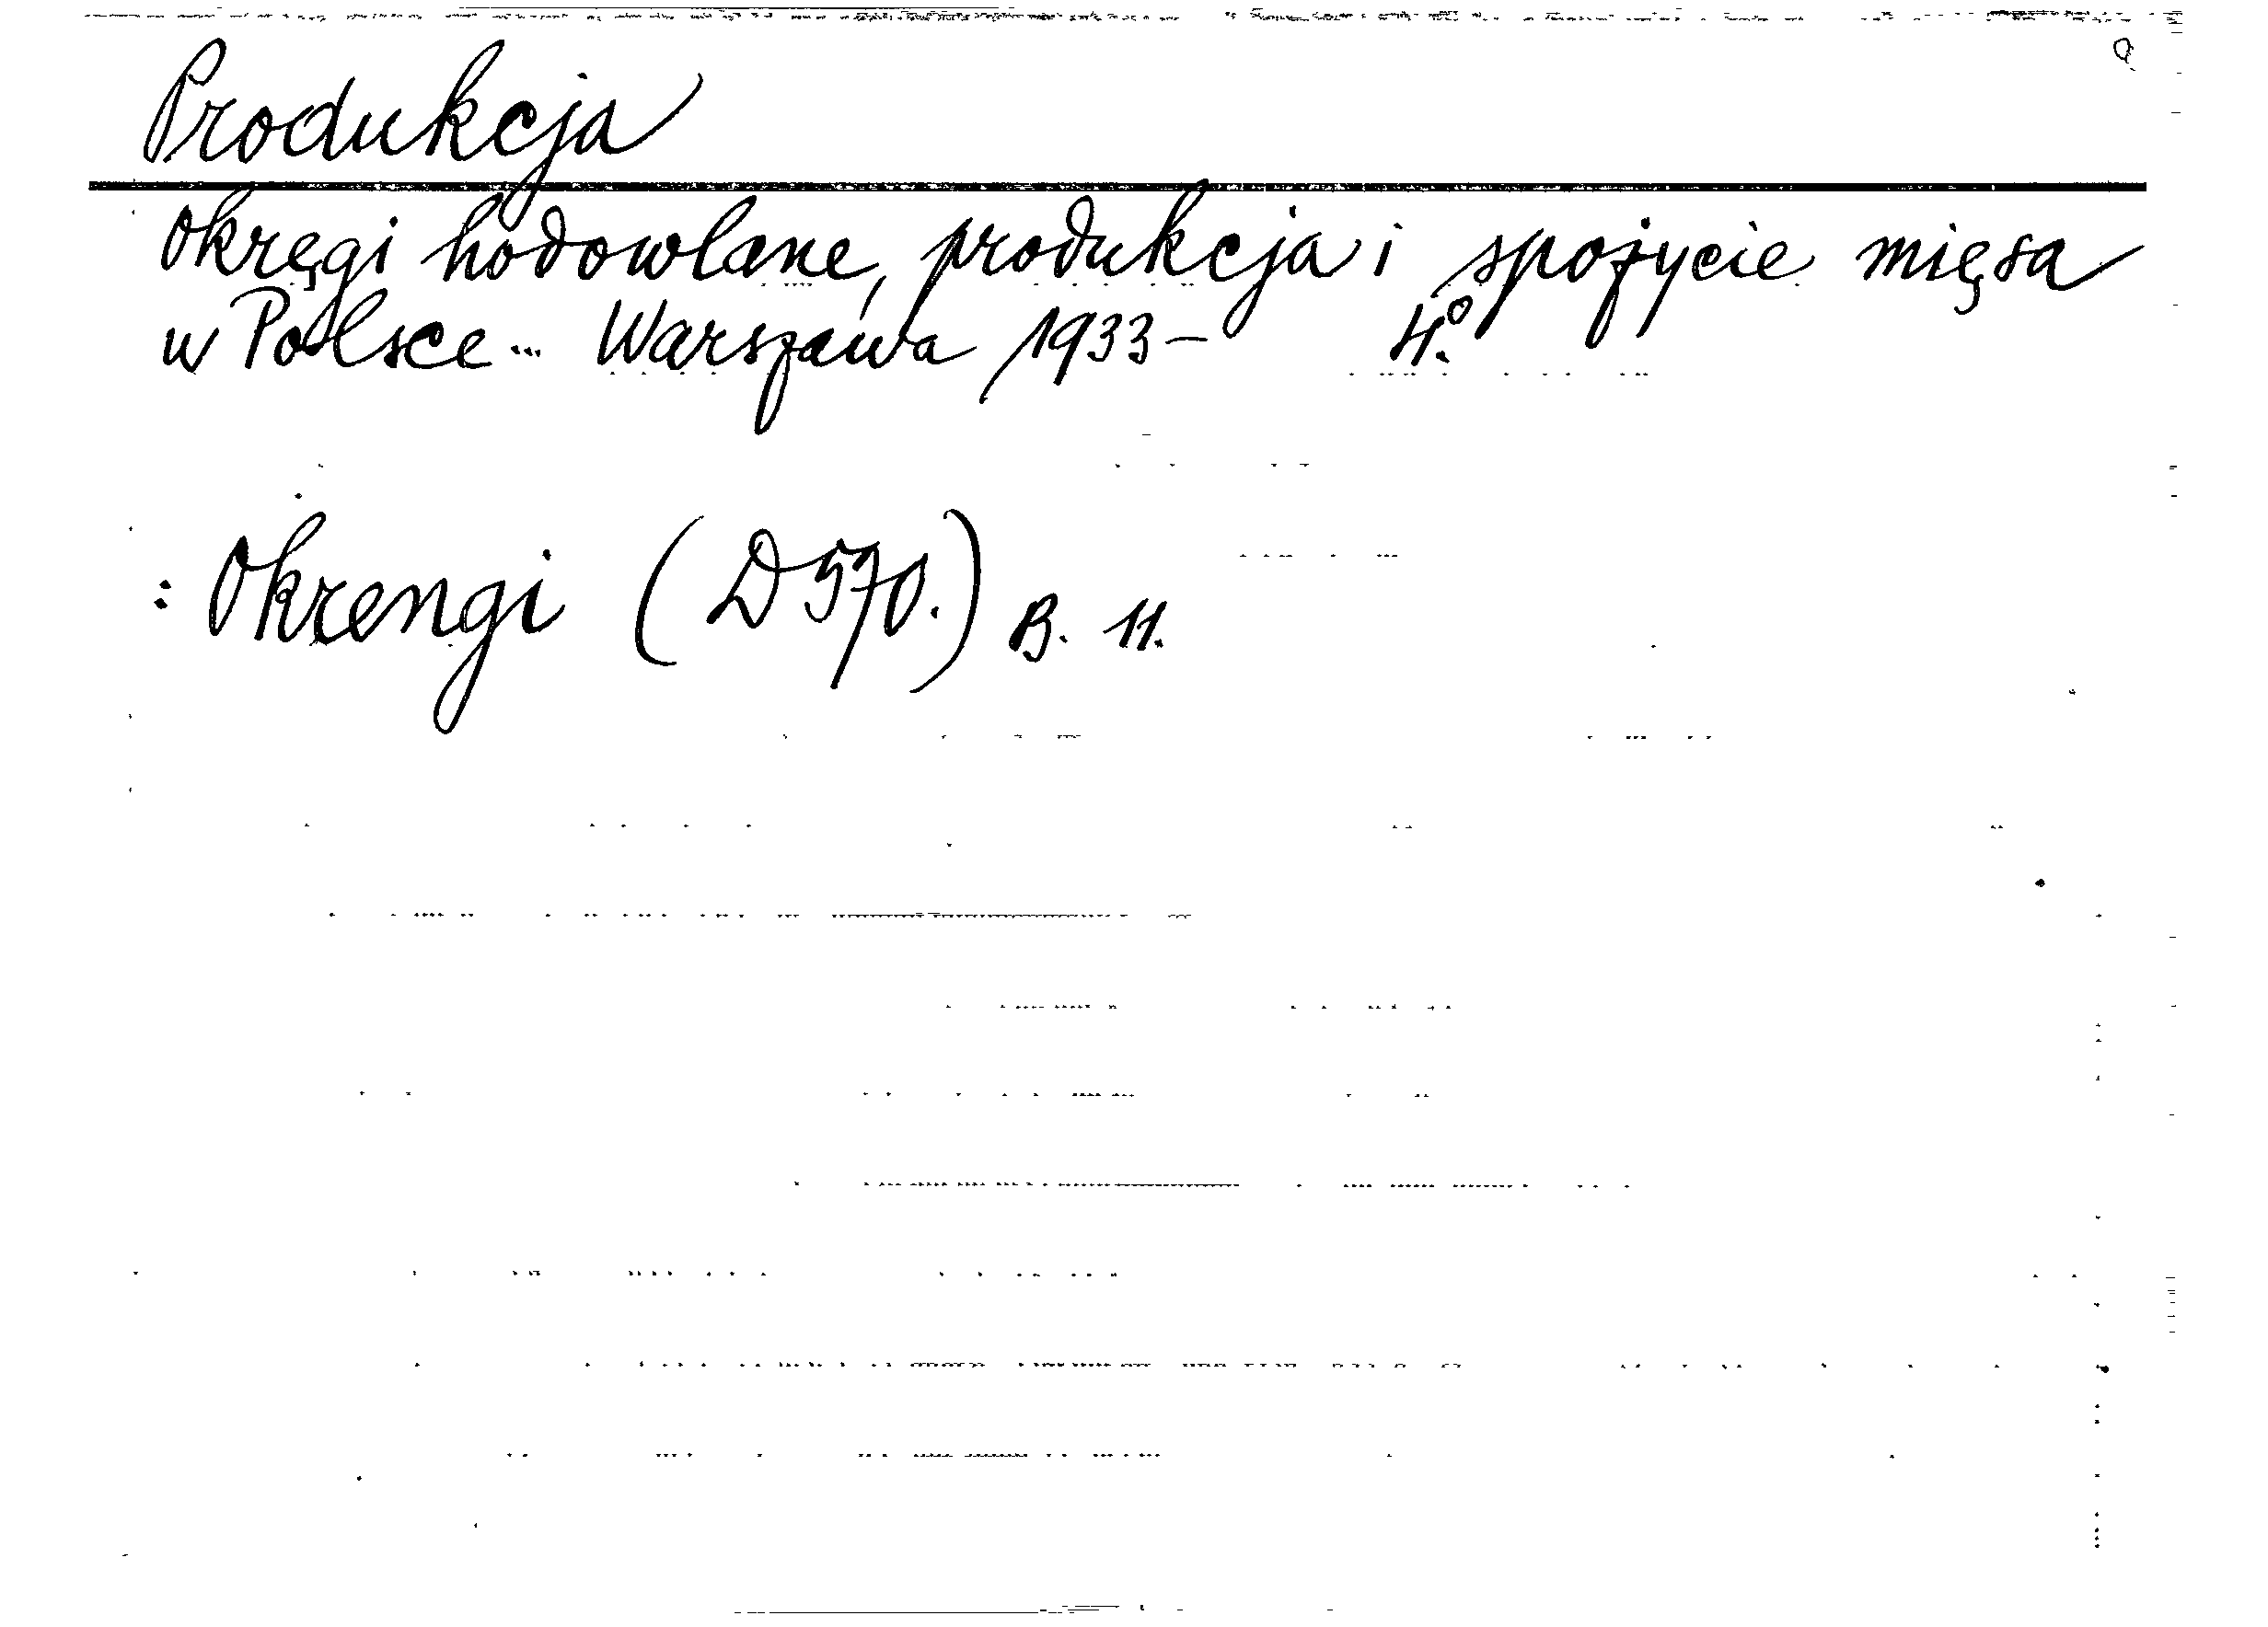 Produkcja
Okręgi hodowlane, produkcja i spożycie mięsa
w Polsce... Warszawa 1933- 4.º
: Okrengi (D570.) B. 11.